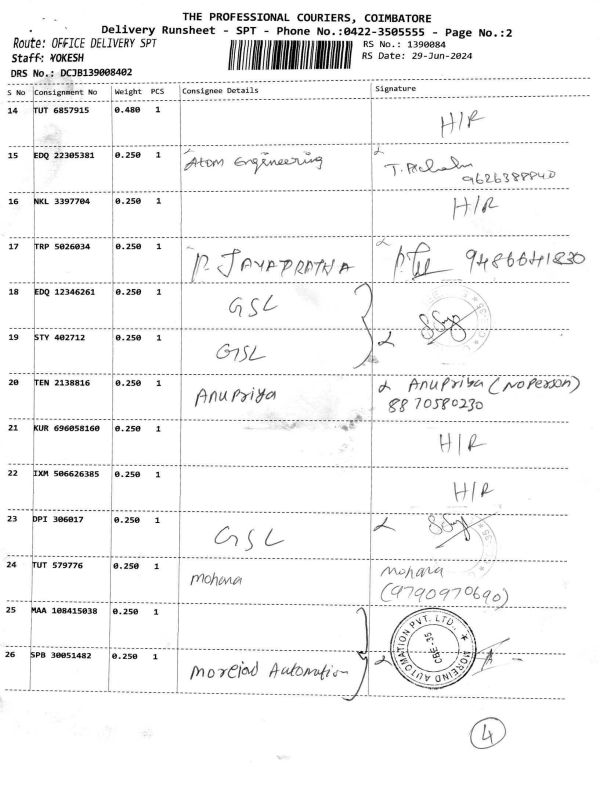 THE PROFESSIONAL COURIERS, COIMBATORE
Delivery Runsheet - SPT - Phone No.:0422-3505555 - Page No.:2
Route: OFFICE DELIVERY SPT
RS No.: 1390084
Staff: YOKESH
RS Date: 29-Jun-2024
DRS No.: DCJB139008402
S No Consignment No Weight PCS Consignee Details Signature
14 TUT 6857915 0.480 1 H/R
15 EDQ 22305381 0.250 1 Atom Engineering
9626388840
16 NKL 3397704 0.250 1 H/R
17 TRP 5026034 0.250 1 P. JAYAPRATHA 9486641830
18 EDQ 12346261 0.250 1 GSL
19 STY 402712 0.250 1 GSL
20 TEN 2138816 0.250 1 Anupriya Anupriya (No Person)
8870580230
21 KUR 696058160 0.250 1 H/R
22 IXM 506626385 0.250 1 H/R
23 DPI 306017 0.250 1 GSL
24 TUT 579776 0.250 1 mohana mohana
(9790970690)
25 MAA 108415038 0.250 1
26 SPB 30051482 0.250 1 Moreind Automation
MOREIND AUTOMATION PVT. LTD.,
CBE-35
4